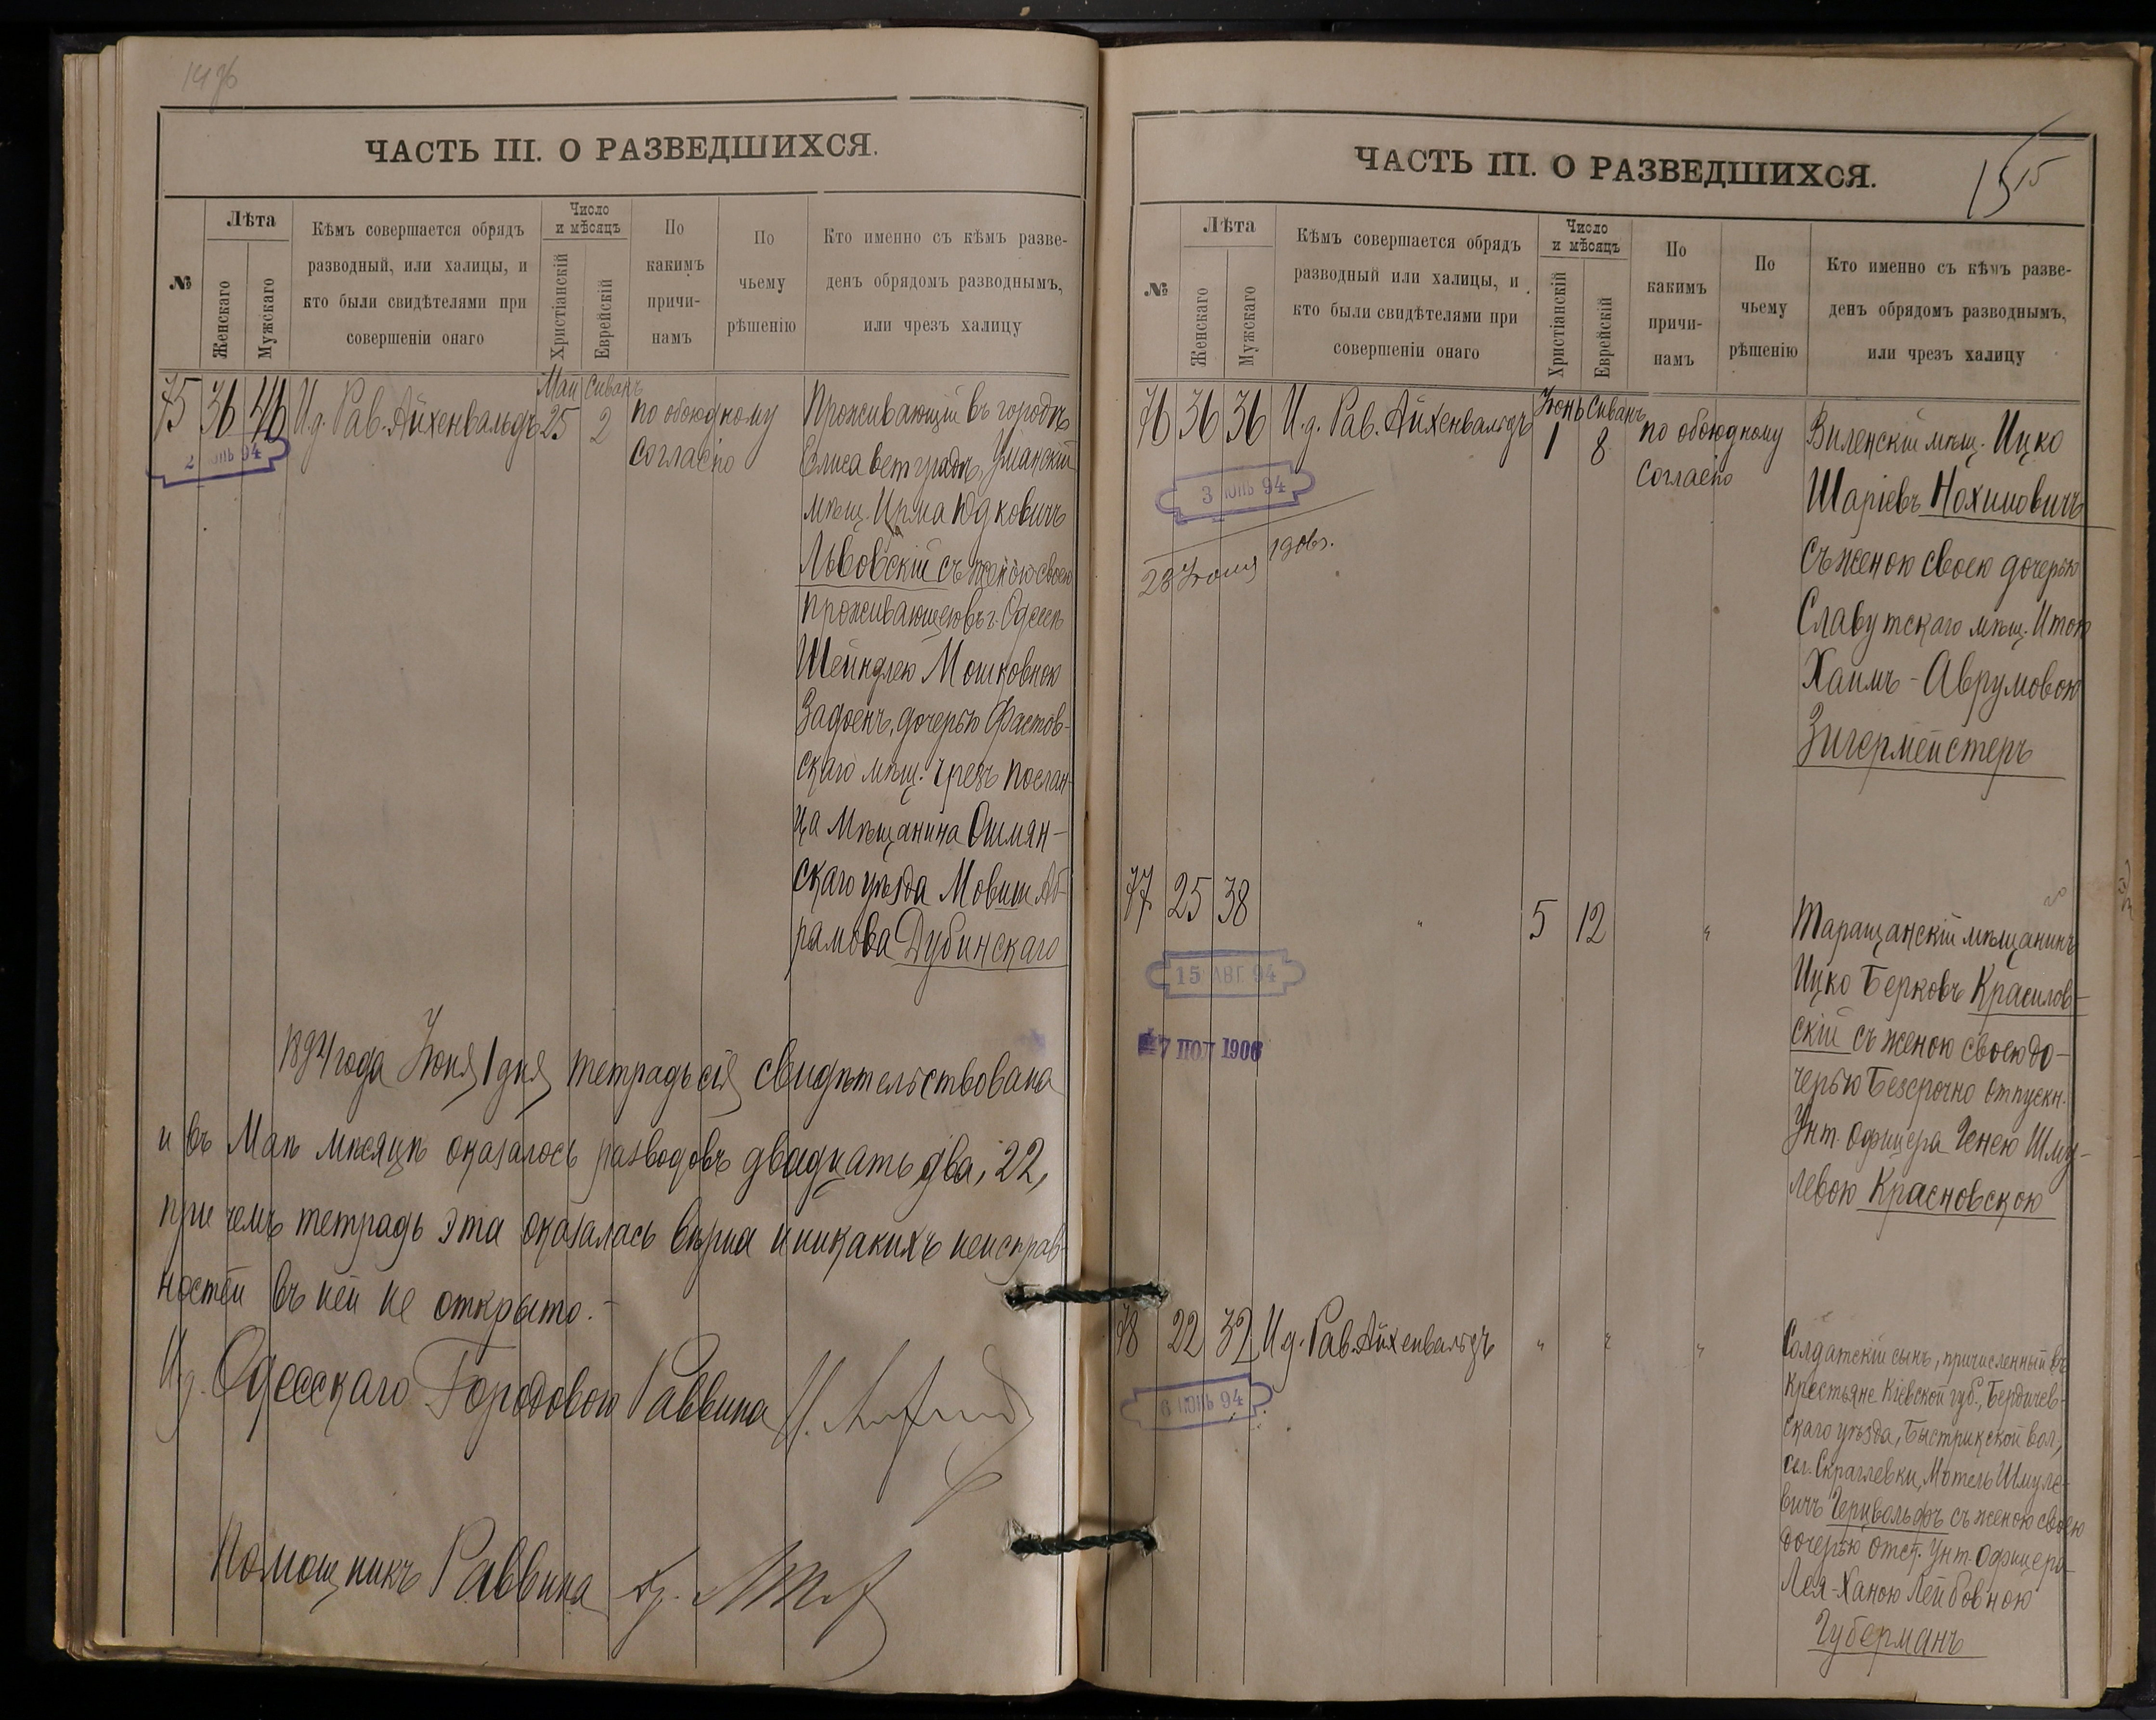 1476
ЧАСТЬ III. О РАЗВЕДШИХСЯ.
№
Лѣта
Женскаго
Мужскаго
Кѣмъ совершается обрядъ
разводный, или халицы, и
кто были свидѣтелями при
совершеніи онаго
Число
и мѣсяцъ
Христіанскій
Еврейскій
По
какимъ
причи-
намъ
По
чьему
рѣшенію
Кто именно съ кѣмъ разве-
денъ обрядомъ разводнымъ,
или чрезъ халицу
75 36 46 И.д. Рав. Айхенвальдъ
Маи 25
Сиванъ 2
по обоюдному
согласію
Проживающій въ городѣ
Елисаветградѣ, Уманскій
мѣщ. Ирма Юдковичъ
Львовскій съ женою своею
проживающею въ г. Одессѣ
Шейндлею Мошковною
Задоенъ, дочерью Фастов-
скаго мѣщ. чрезъ послан-
ца мѣщанина Ошмян-
скаго уѣзда Мовши Аб-
рамова Дубинскаго
1894 года Іюня 1 дня тетрадь сія свидѣтельствована
и въ Маѣ мѣсяцѣ оказалось разводовъ двадцать два, 22,
при чемъ тетрадь эта оказалась вѣрна и никакихъ неисправ-
ностей въ ней не открыто.-
И.д. Одесскаго Городового Раввина
Помощникъ Раввина
ЧАСТЬ III. О РАЗВЕДШИХСЯ.
15 15
№
Лѣта
Женскаго
Мужскаго
Кѣмъ совершается обрядъ
разводный или халицы, и
кто были свидѣтелями при
совершеніи онаго
Число
и мѣсяцъ
Христіанскій
Еврейскій
По
какимъ
причи-
намъ
По
чьему
рѣшенію
Кто именно съ кѣмъ разве-
денъ обрядомъ разводнымъ,
или чрезъ халицу
76 36 36 И.д. Рав. Айхенвальдъ
Іюнь 1
Сиванъ 8
по обоюдному
согласію
3 ІЮНЬ 94
28 Іюля 1906г.
Виленскій мѣщ. Ицко
Шаріевъ Нохимовичъ
съ женою своею дочерью
Славутскаго мѣщ. Итою
Хаимъ-Аврумовою
Зигермейстеръ
77 25 38 " 5 12 "
15 АВГ. 94
7 ІЮЛ 1906
Таращанскій мѣщанинъ
Ицко Берковъ Красилов-
скій съ женою своею до-
черью безсрочно отпускн.
Унт. Офицера Генею Шму-
левою Красновскою
78 22 32 И.д. Рав. Айхенвальдъ " " "
6 ІЮНЬ 94
Солдатскій сынъ, причисленный въ
крестьяне Кіевской губ., Бердичев-
скаго уѣзда, Быстрикской вол.,
сел. Скраглевки, Мотель Шмуле-
вичъ Герцвольфъ съ женою своею
дочерью отст. Унт-Офицера
Лея-Ханою Лейбовною
Губерманъ